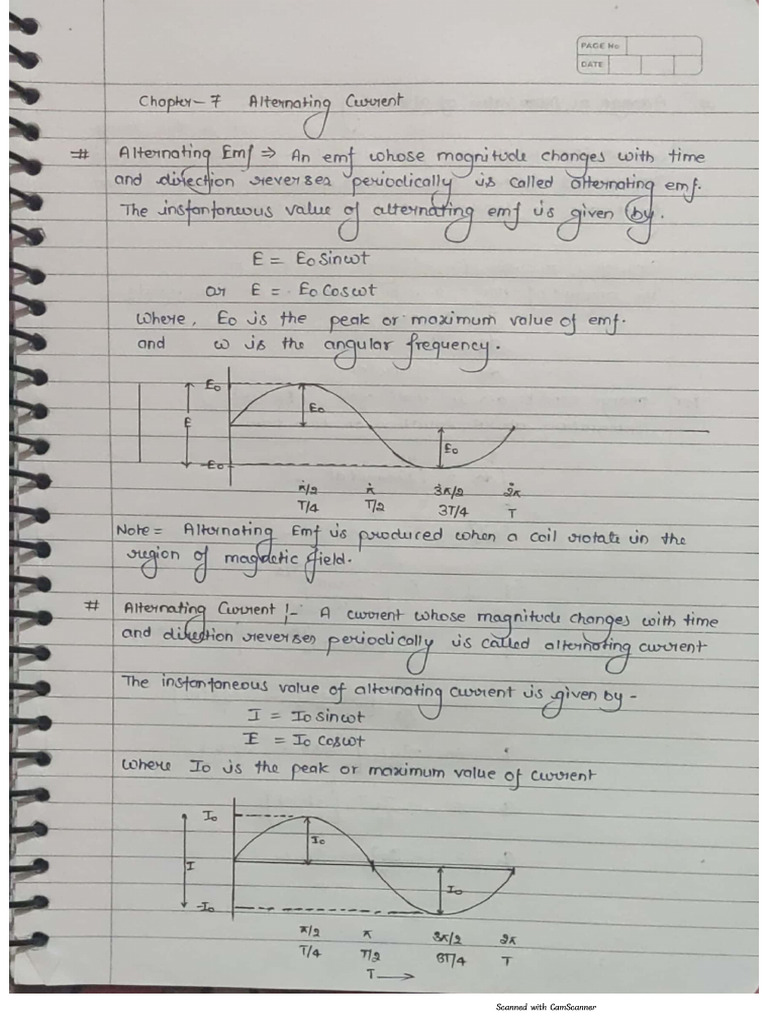 PAGE No
DATE
Chapter-7 Alternating Current
# Alternating Emf ⇒ An emf whose magnitude changes with time
and direction reverses periodically is called alternating emf.
The instantaneous value of alternating emf is given by.
E = E₀ sinωt
or E = E₀ Cosωt
Where, E₀ is the peak or maximum value of emf.
and ω is the angular frequency.
E₀
E₀
E
E₀
-E₀
π/2 π 3π/2 2π
T/4 T/2 3T/4 T
Note = Alternating Emf is produced when a coil rotate in the
region of magnetic field.
# Alternating Current :- A current whose magnitude changes with time
and direction reverses periodically is called alternating current
The instantaneous value of alternating current is given by -
I = I₀ sinωt
I = I₀ cosωt
where I₀ is the peak or maximum value of current
I₀
I₀
I
I₀
-I₀
π/2 π 3π/2 2π
T/4 T/2 3T/4 T
T →
Scanned with CamScanner